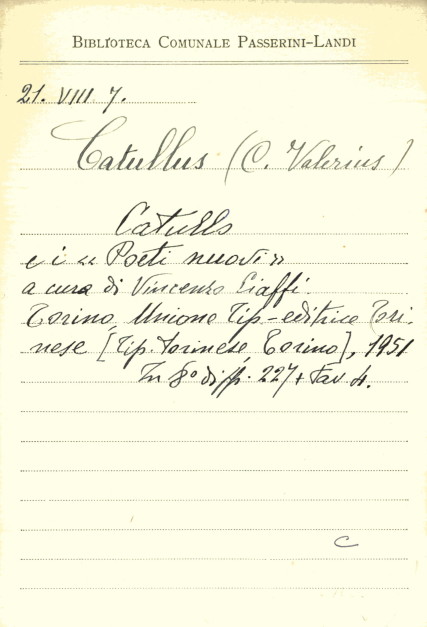 BIBLIOTECA COMUNALE PASSERINI-LANDI
21. VIII 7.
Catullus (C. Valerius)
Catullo
e i « Poeti nuovi »
a cura di Vincenzo Ciaffi.
Torino, Unione Tip-editrice Tori-
nese [Tip. torinese, Torino], 1951
In 8° di pp. 227 + tav 4.
C